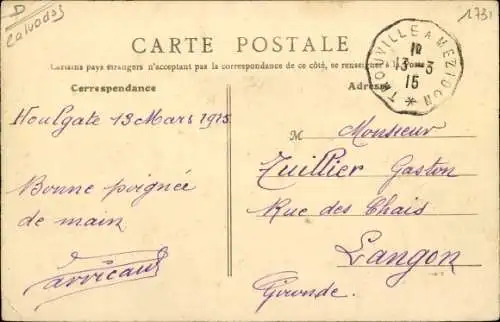 D
Calvados
1731
TROUVILLE A MEZIDON
1R
13 - 3
15
*
CARTE POSTALE
Certains pays étrangers n'acceptant pas la correspondance de ce côté, se renseigner à la Poste
Correspondance
Adresse
Houlgate 13 Mars 1915
Bonne poignée
de main
M
Monsieur
Tuillier Gaston
Rue des Chais
Langon
Gironde.